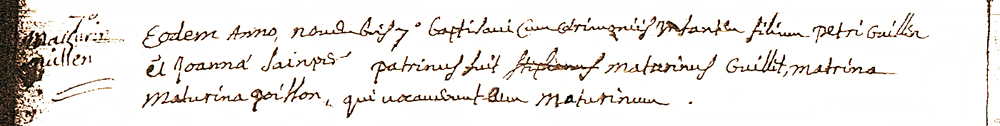 7°
Maturin
guillen
Eodem Anno, novembris 7° baptisavi cum cerimoniis Infantem filium petri Guillen
et Joannæ Sainpé patrinus fuit Stephanus maturinus Guillet, matrina
Maturina poisson, qui vocaverunt eum maturinum.